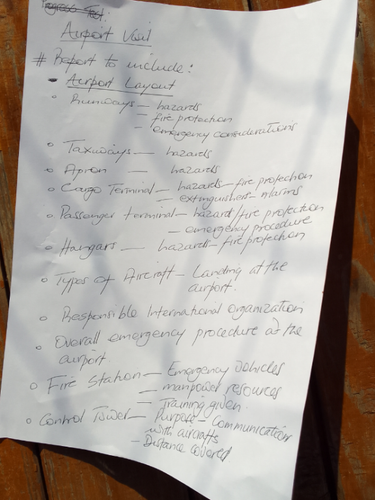 Progress Test.
Airport Visit
# Report to include:
- Airport Layout
° Runways — hazards
— fire protection
— emergency considerations
° Taxiways — hazards
° Apron — hazards
° Cargo Terminal — hazards — fire protection
— extinguishers — alarms
° Passenger terminal — hazard/fire protection
— emergency procedure
° Hangars — hazards — fire protection
° Types of Aircraft — Landing at the
airport.
° Responsible International organization
° Overall emergency procedure at the
airport
° Fire Station — Emergency Vehicles
— manpower resources
— Training given.
° Control Tower — Purpose — Communication
with aircrafts
— Distance covered